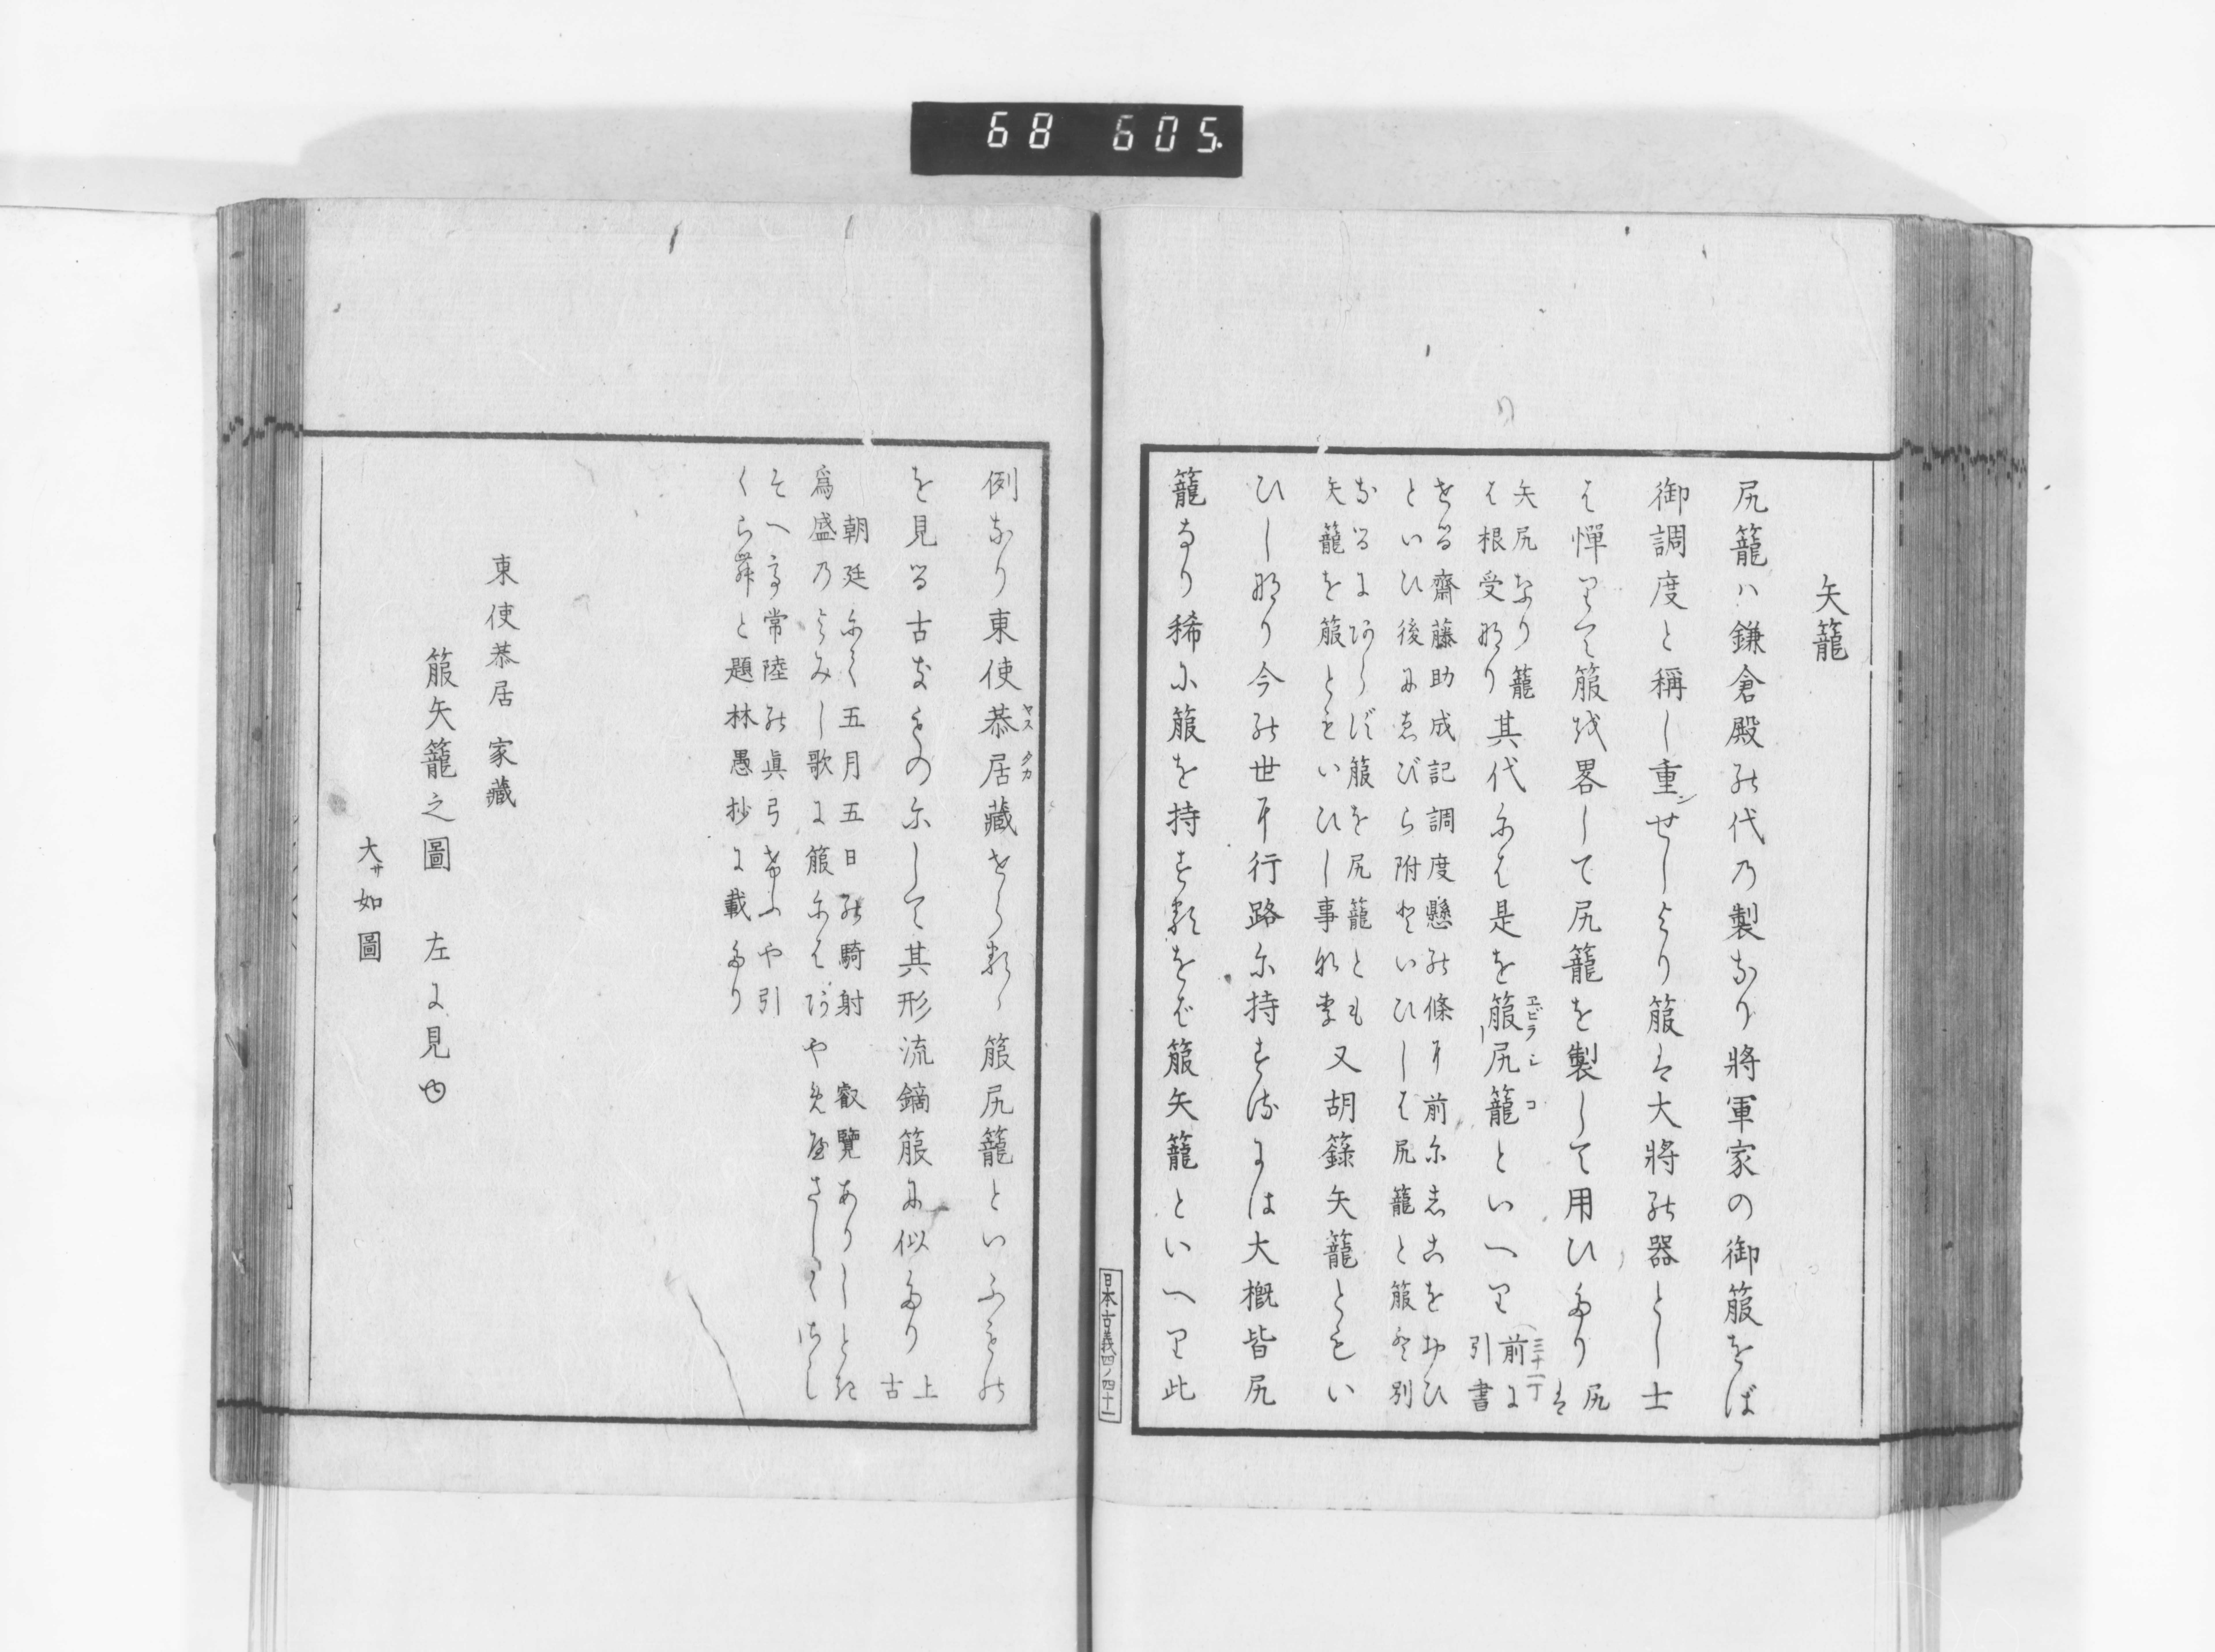 68 605.
矢籠
尻籠ハ鎌倉殿の代乃製なり將軍家の御箙をば
御調度と稱し重ンせしより箙は大將の器とし士
は憚りて箙を畧して尻籠を製して用ひたり尻は
矢尻なり籠
は根受なり
其代には是を箙尻籠といへり
エビラシコ
三十一丁
前に
引書
せる齋藤助成記調度懸の條に前にしこをおひ
といひ後にゑびら附といひしは尻籠と箙と別
なるにあらず箙を尻籠とも
矢籠を箙ともいひし事なり
又胡籙矢籠ともい
ひしなり今の世に行路に持するには大概皆尻
籠なり稀に箙を持する家をば箙矢籠といへり此
日本古義四ノ四十一
例なり東使恭居藏せら箙尻籠といふもの
ヤスタカ
を見る古きものにして其形流鏑箙に似たり
上古
朝廷にて五月五日の騎射 叡覽ありしとき
爲盛乃よみし歌に箙にはあやめ
そへて常陸の眞弓けふや引
くらんと題林愚抄に載たり
東使恭居家藏
箙矢籠之圖 左に見ゆ
大サ如圖